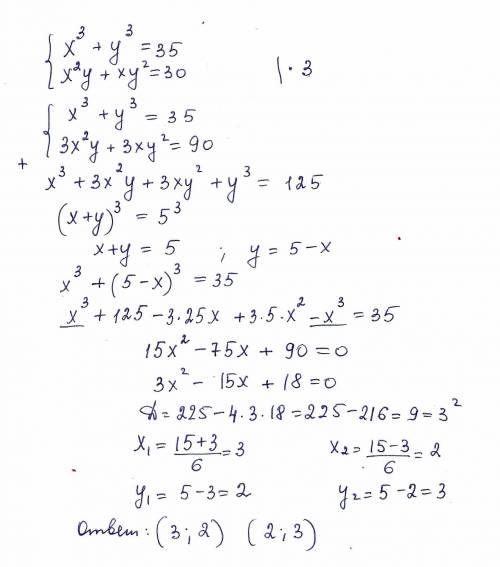 x³ + y³ = 35
x²y + xy² = 30 | · 3
x³ + y³ = 35
3x²y + 3xy² = 90
+
x³ + 3x²y + 3xy² + y³ = 125
(x+y)³ = 5³
x+y = 5 ; y = 5 - x
x³ + (5 - x)³ = 35
x³ + 125 - 3·25x + 3·5·x² - x³ = 35
15x² - 75x + 90 = 0
3x² - 15x + 18 = 0
D = 225 - 4·3·18 = 225 - 216 = 9 = 3²
x₁ = (15+3)/6 = 3 x₂ = (15-3)/6 = 2
y₁ = 5 - 3 = 2 y₂ = 5 - 2 = 3
Ответ: (3; 2) (2; 3)